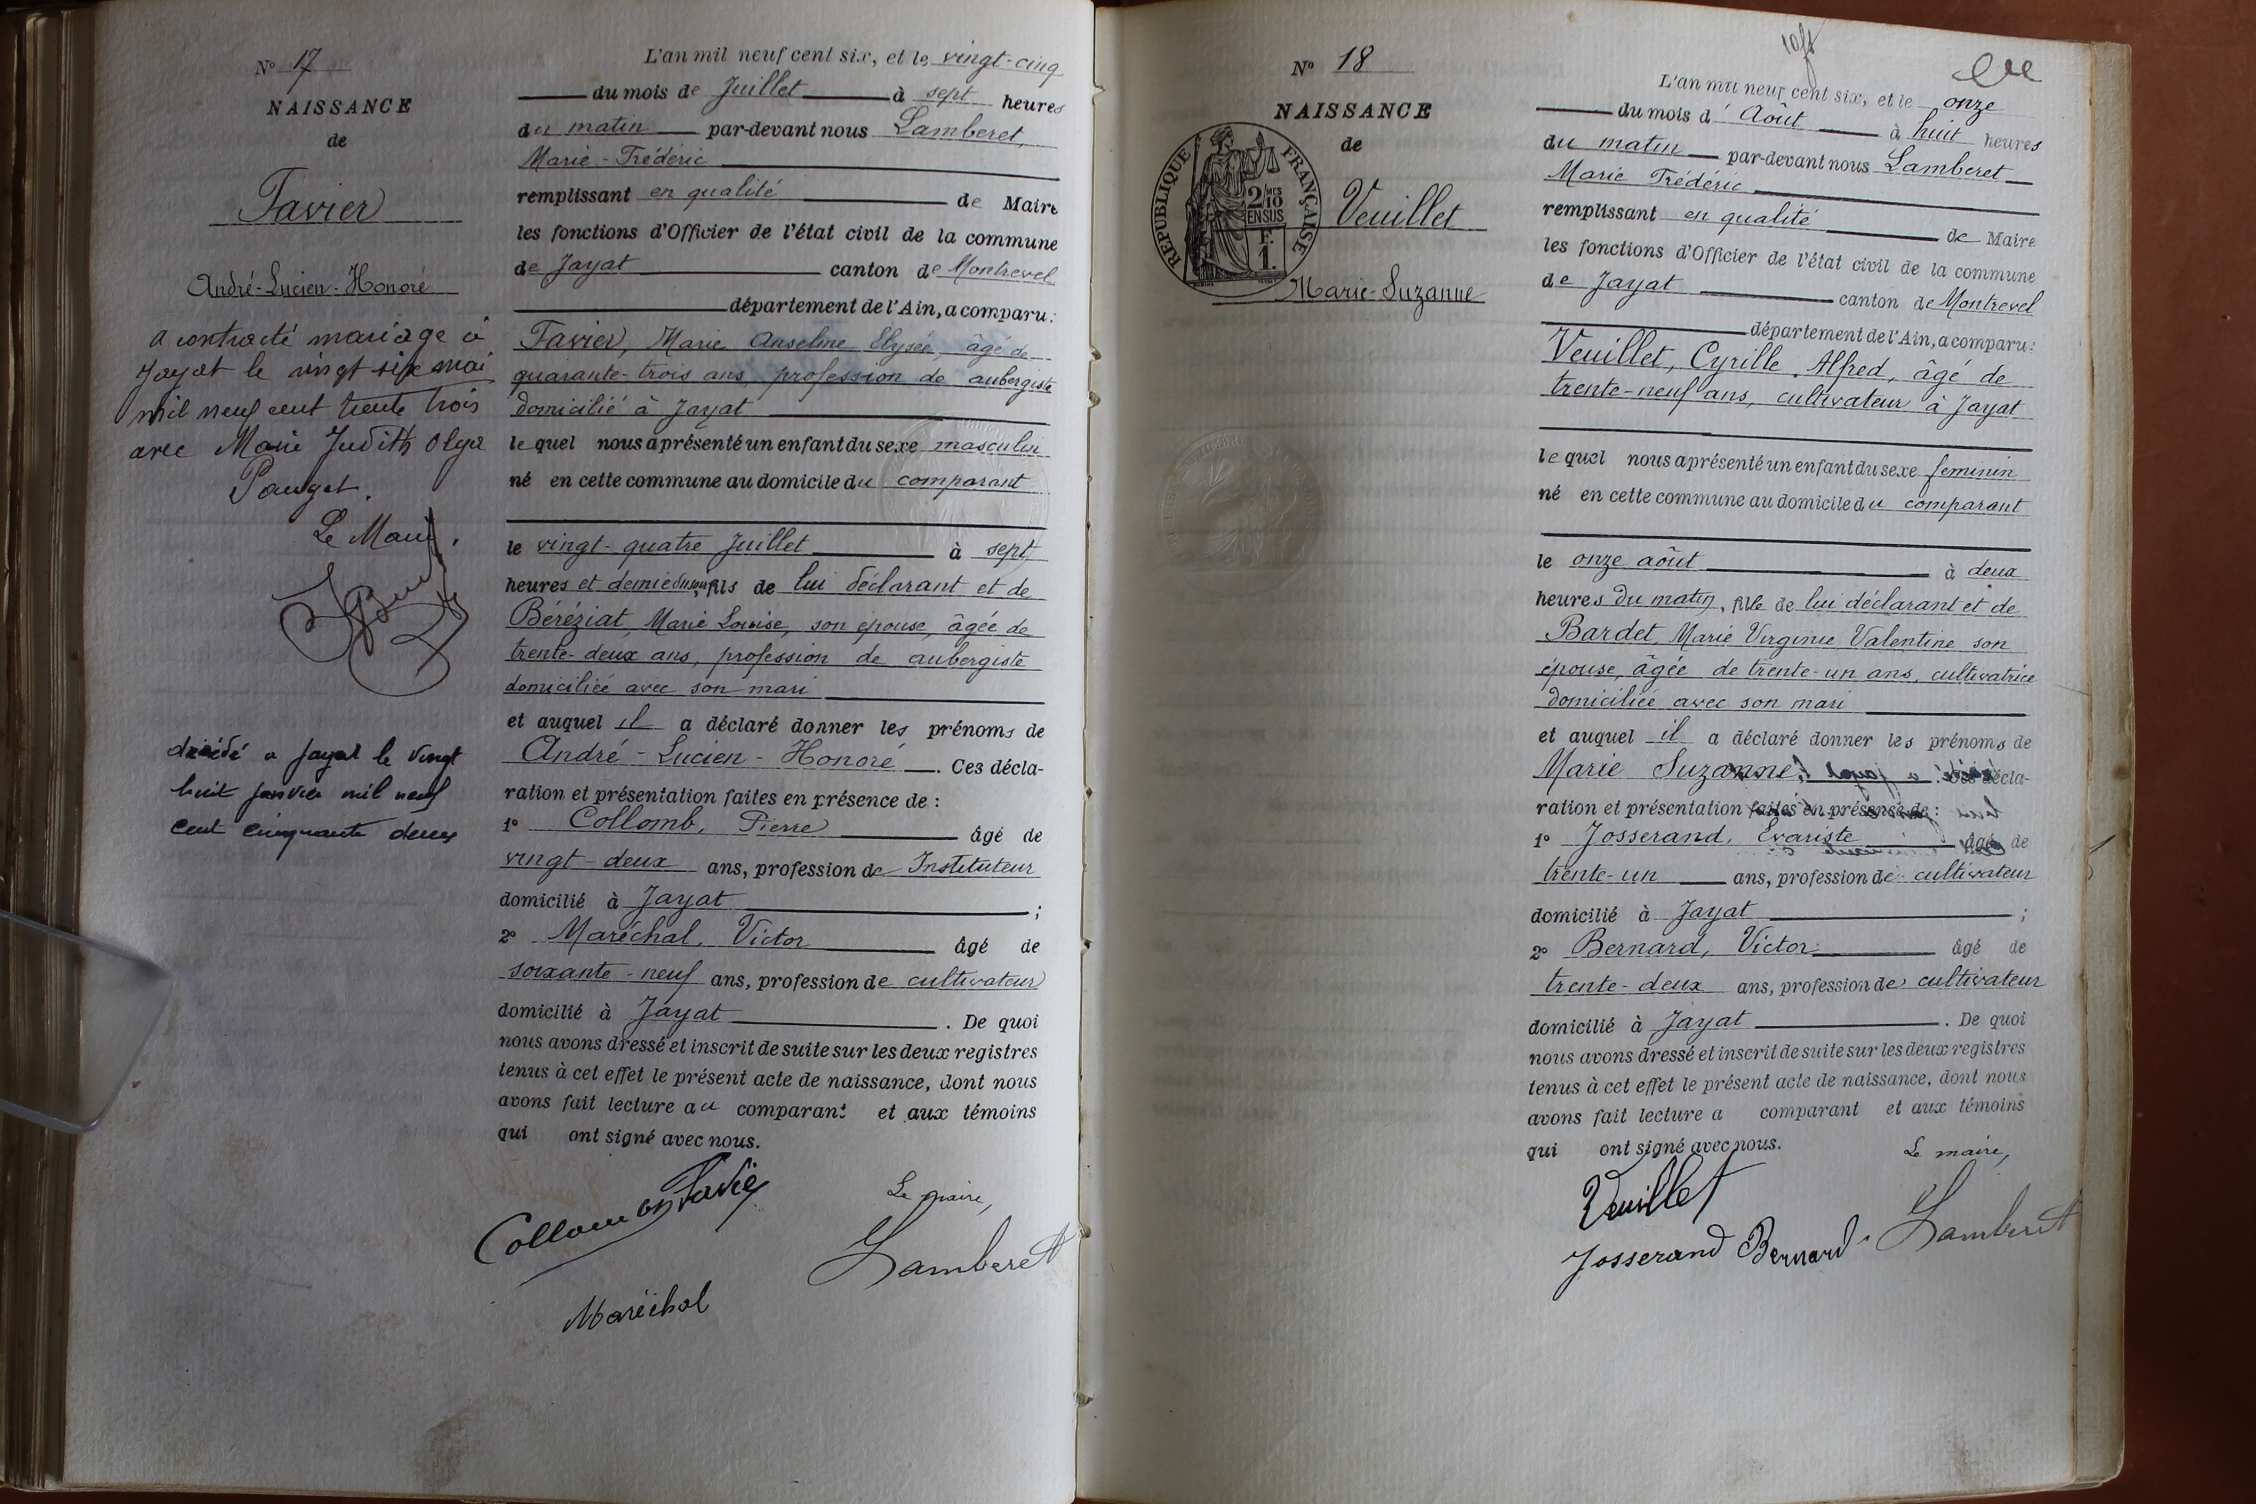 N° 17
NAISSANCE
de
Favier
André-Lucien-Honoré
a contracté mariage à
Jayat le vingt six mai
mil neuf cent trente trois
avec Marie Judith Olga
Pauget.
Le Maire.
décédé a Jayat le vingt
huit janvier mil neuf
cent cinquante deux
L'an mil neuf cent six, et le vingt-cinq
du mois de Juillet à sept heures
du matin par-devant nous Lamberet,
Marie-Frédéric
remplissant en qualité de Maire
les fonctions d'Officier de l'état civil de la commune
de Jayat canton de Montrevel
département de l'Ain, a comparu:
Favier, Marie Anselme Elysée, âgé de
quarante-trois ans, profession de aubergiste
domicilié à Jayat
lequel nous a présenté un enfant du sexe masculin
né en cette commune au domicile du comparant
le vingt-quatre Juillet à sept
heures et demie du soir, fils de lui déclarant et de
Béréziat, Marie Louise, son épouse, âgée de
trente-deux ans, profession de aubergiste
domiciliée avec son mari
et auquel il a déclaré donner les prénoms de
André-Lucien-Honoré. Ces décla-
ration et présentation faites en présence de :
1° Collomb, Pierre âgé de
vingt-deux ans, profession de Instituteur
domicilié à Jayat ;
2° Maréchal, Victor âgé de
soixante-neuf ans, profession de cultivateur
domicilié à Jayat . De quoi
nous avons dressé et inscrit de suite sur les deux registres
tenus à cet effet le présent acte de naissance, dont nous
avons fait lecture au comparant et aux témoins
qui ont signé avec nous.
Collomb Favier
Le maire,
Lamberet
Maréchal
N° 18
NAISSANCE
de
REPUBLIQUE FRANÇAISE
2/10 MES
EN SUS
F.
1.
Veuillet
Marie-Suzanne
L'an mil neuf cent six, et le onze
du mois d'Août à huit heures
du matin par-devant nous Lamberet
Marie Frédéric
remplissant en qualité de Maire
les fonctions d'Officier de l'état civil de la commune
de Jayat canton de Montrevel
département de l'Ain, a comparu:
Veuillet, Cyrille Alfred, âgé de
trente-neuf ans, cultivateur à Jayat
lequel nous a présenté un enfant du sexe feminin
né en cette commune au domicile du comparant
le onze août à deux
heures du matin, fille de lui déclarant et de
Bardet Marie Virginie Valentine son
épouse, âgée de trente-un ans, cultivatrice
domiciliée avec son mari
et auquel il a déclaré donner les prénoms de
Marie Suzanne. Ces décla-
ration et présentation faites en présence de :
1° Josserand, Evariste âgé de
trente-un ans, profession de cultivateur
domicilié à Jayat ;
2° Bernard, Victor âgé de
trente-deux ans, profession de cultivateur
domicilié à Jayat . De quoi
nous avons dressé et inscrit de suite sur les deux registres
tenus à cet effet le présent acte de naissance, dont nous
avons fait lecture a comparant et aux témoins
qui ont signé avec nous.
Le maire,
Veuillet
Josserand Bernard Lamberet